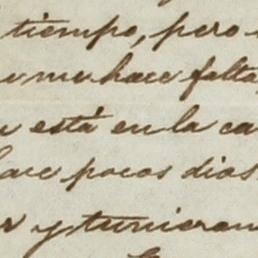 tiempo, pero
me hace falta
está en la ca
hace pocos dias
r y tuvieron